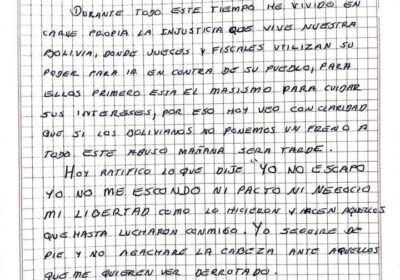 DURANTE TODO ESTE TIEMPO HE VIVIDO EN
CARNE PROPIA LA INJUSTICIA QUE VIVE NUESTRA
BOLIVIA, DONDE JUECES Y FISCALES UTILIZAN SU
PODER PARA IR EN CONTRA DE SU PUEBLO, PARA
ELLOS PRIMERO ESTA EL MASISMO PARA CUIDAR
SUS INTERESES, POR ESO HOY VEO CON CLARIDAD
QUE SI LOS BOLIVIANOS NO PONEMOS UN FRENO A
TODO ESTE ABUSO MAÑANA SERA TARDE.
HOY RATIFICO LO QUE DIJE "YO NO ESCAPO
YO NO ME ESCONDO NI PACTO NI NEGOCIO
MI LIBERTAD COMO LO HICIERON Y HACEN AQUELLOS
QUE HASTA LUCHARON CONMIGO. YO SEGUIRE DE
PIE Y NO AGACHARE LA CABEZA ANTE AQUELLOS
QUE ME QUIEREN VER DERROTADO.